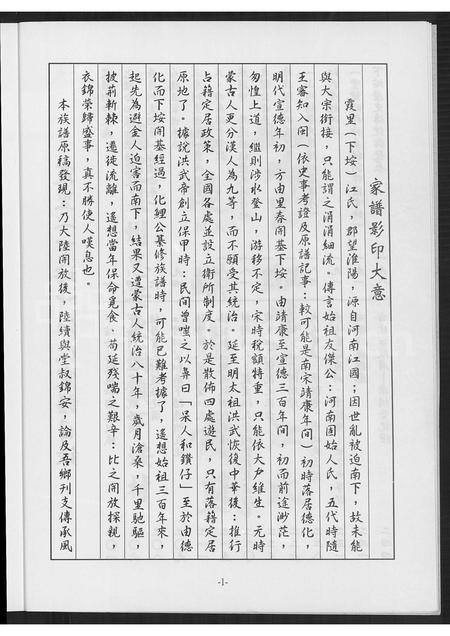 家譜影印大意
霞里(下垵)江氏,郡望淮陽,源自河南江國;因世亂被迫南下,故未能
與大宗銜接,只能謂之涓涓細流。傳言始祖友傑公:河南固始人氏,五代時隨
王審知入閩(依史事考證及原譜記事:較可能是南宋靖康年間)初時落居德化,
明代宣德年初,方由里春開基下垵。由靖康至宣德三百年間,初而前途渺茫,
勿惶上道,繼則涉水登山,游移不定,宋時稅額特重,只能依大户維生。元時
蒙古人更分漢人為九等,而不願受其統治。延至明太祖洪武恢復中華後:推行
占籍定居政策,全國各處並設立衛所制度。於是散佈四處遊民,只有落籍定居
原地了。據說洪武帝創立保甲時:民間曾嗤之以鼻曰「呆人和鑽仔」至於由德
化而下垵開基經過,化鯉公纂修族譜時,可能已難考據了,遥想始祖三百年來,
起先為避金人迫害而南下,結果又遭蒙古人統治八十年,歲月滄桑,千里馳驅,
披荊斬棘,遷徙流離,遥想當年保命覓食、苟延殘喘之艱辛:比之開放探親,
衣錦榮歸盛事,真不勝使人嘆息也。
本族譜原稿發現:乃大陸開放後,陸續與堂叔錦安,論及吾鄉刊支傳承風
-1-